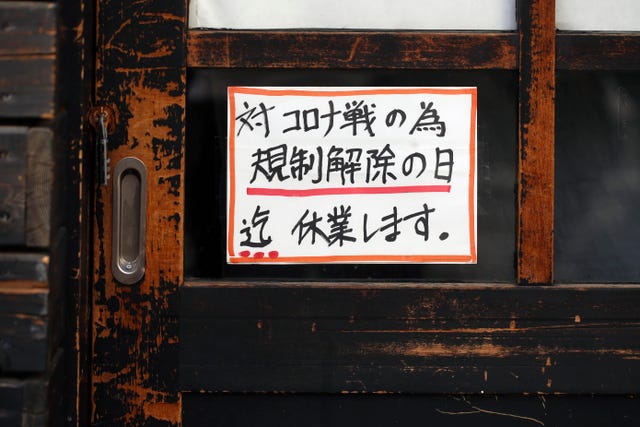 対コロナ戦の為
規制解除の日
迄 休業します。